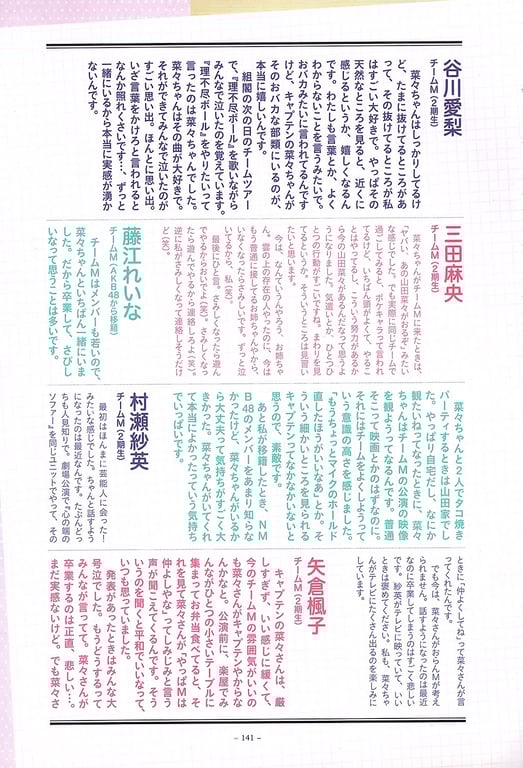 谷川愛梨
チームM(2期生)
菜々ちゃんはしっかりしてるけ
ど、たまに抜けてるところがあ
って、その抜けてるところが私
はすごい大好きで。やっぱその
天然なところを見ると、近くに
感じるというか、嬉しくなるん
です。わたしも言葉とか、よく
わからないことを言うみたいで、
おバカみたいに言われてるんです
けど、キャプテンの菜々ちゃんが
そのおバカな部類にいるのが、
本当に嬉しいんです。
組閣の次の日のチームツアー
で、『理不尽ボール』を歌いながら
みんなで泣いたのを覚えています。
『理不尽ボール』をやりたいって
言ったのは菜々ちゃんでした。
菜々ちゃんはその曲が大好きで。
それができてみんなで泣いたのが
すごい思い出。ほんとに思い出。
いざ言葉をかけろと言われると
なんか照れくさいです…、ずっと
一緒にいるから本当に実感が湧か
ないんです。
三田麻央
チームM(2期生)
菜々ちゃんがチームMに来たときは、
「ヤバい、あの山田菜々がおるぞ」みたい
な感じでした。でも実際に同じチームで
過ごしてみると、ボケキャラって言われ
てるけど、いちばん頭がよくて、やるこ
とはやってるし、こういう努力があるか
ら今の山田菜々があるんだなって思うよ
うになりました。気遣いとか、ひとつひ
とつの行動がすごいですね。まわりを見
てるというか。そういうところは見習い
たいと思います。
今は、なんていうんやろう、お姉ちゃ
ん。雲の上の存在の人やったのに、今は
もう普通に接してるお姉ちゃんやから、
いなくなったらさみしいです。ずっと泣
いてるから、私(笑)。
最後にひと言。さみしくなったら遊ん
でやるからおいでよ(笑)。さみしくなっ
たら遊んでやるから連絡しろよ(笑)。
逆に私がさみしくなって連絡しそうだけ
ど(笑)。
藤江れいな
チームM(AKB48から移籍)
チームMはメンバーも若いので、
菜々ちゃんといちばん一緒にいま
した。だから卒業して、さびし
いなって思うことは多いです。
菜々ちゃんと2人でタコ焼き
パーティするときは山田家でし
た。やっぱり自宅だし、なにか
観たいねってなったときに、菜々
ちゃんはチームMの公演の映像
を観ようってなるんです。普通
そこって映画とかのはずなのに。
それにはチームをよくしようって
いう意識の高さを感じました。
「もうちょっとマイクのホールド
直したほうがいいなあ」とか。そ
ういう細かいところを見られる
キャプテンってなかなかいないと
思うので、素敵です。
あと私が移籍したとき、NM
B48のメンバーをあまり知らな
かったけど、菜々ちゃんがいるか
ら大丈夫って気持ちがすごく大
きかった。菜々ちゃんがいてくれ
て本当によかったっていう気持ち
でいっぱいです。
村瀬紗英
チームM(2期生)
最初はほんまに芸能人に会った!
みたいな感じでした。ちゃんと話すよう
になったのは最近なんです。たぶんどっ
ちも人見知りで。劇場公演で『心の端の
ソファー』を同じユニットでやって、その
ときに、「仲よくしてね」って菜々さんが言
ってくれたんです。
でも今は、菜々さんがおらんMが考え
られません。話すようになったのは最近
なのに卒業してしまうのはすごく悲しい
です。紗英がテレビに映っていて、いい
ときは褒めてください。私も、菜々ちゃ
んがテレビにたくさん出るのを楽しみに
しています。
矢倉楓子
チームM(2期生)
キャプテンの菜々さんは、厳
しすぎず、いい感じに緩くて、
今のチームMの雰囲気がいいの
も菜々さんがキャプテンやからな
んかなと。公演前に、楽屋でみ
んながひとつの小さいテーブルに
集まってお弁当食べてると、そ
れを見て菜々さんが、「やっぱMは
仲よしやな」ってしみじみと言う
声が聞こえてくるんです。そう
いうのを聞くと平和でいいなって、
いつも思っていました。
発表があったときはみんな大
号泣でした。もうどうするって
みんなが言ってて。菜々さんが
卒業するのは正直、悲しい…。
まだ実感ないけど。でも菜々さ
- 141 -